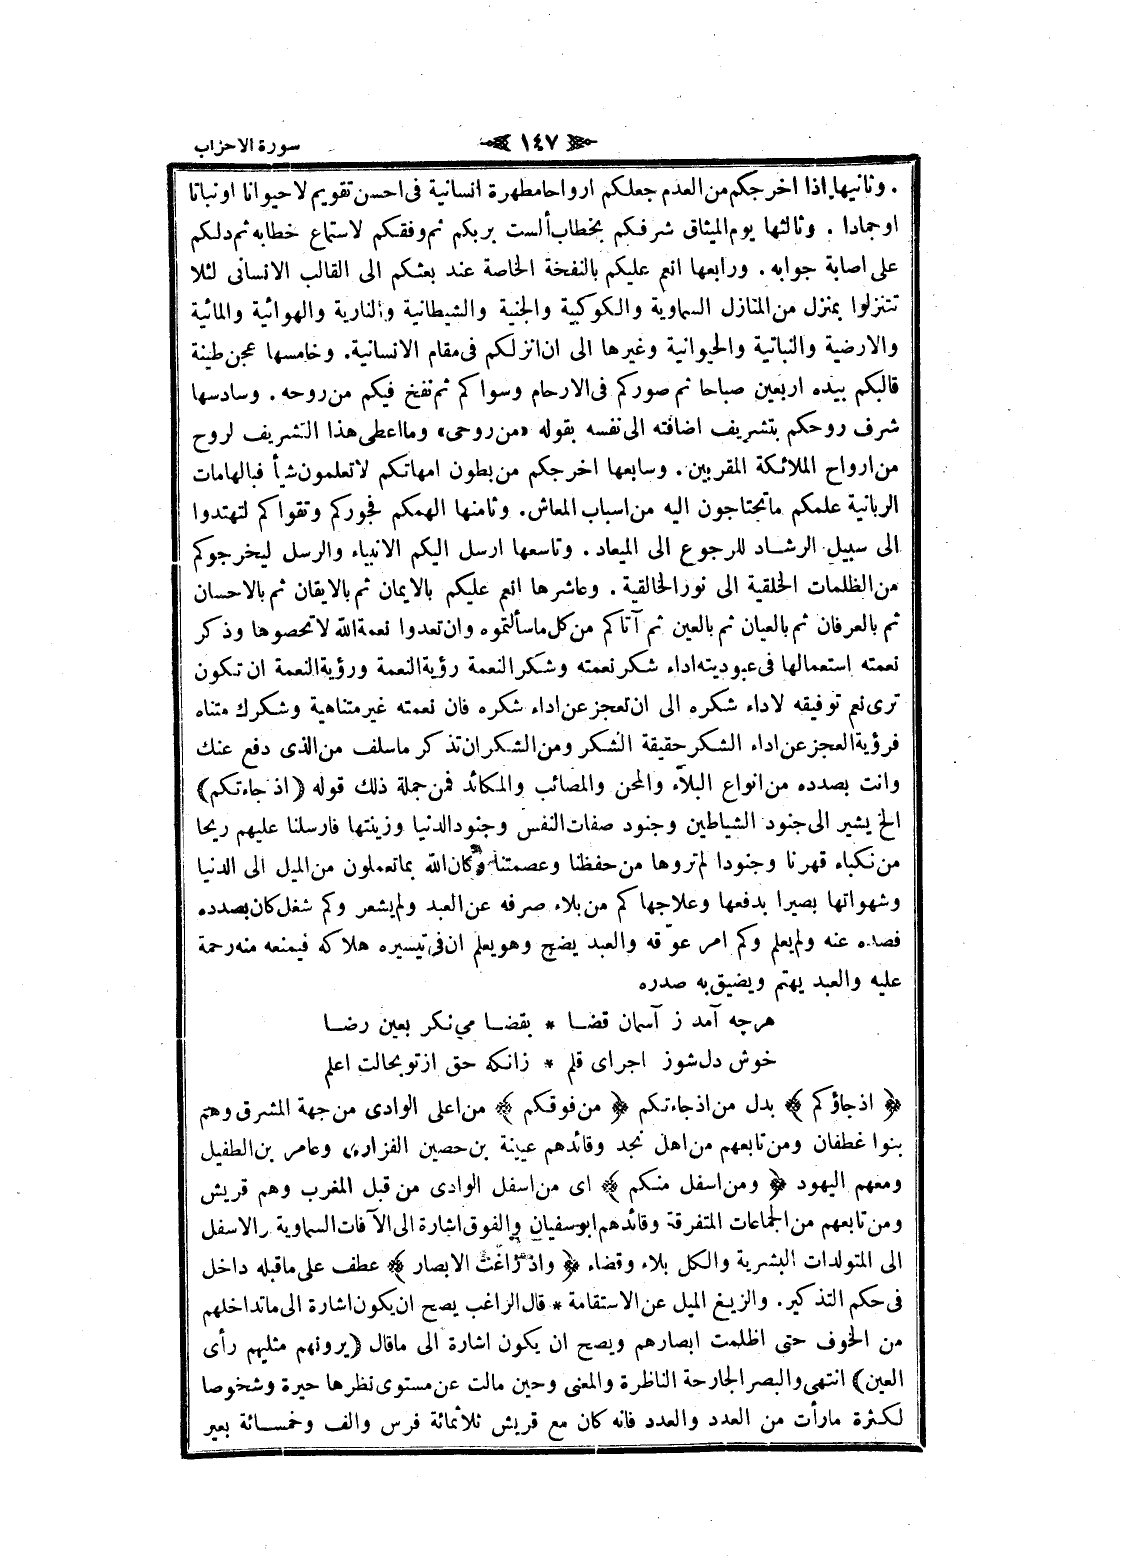 سورة الاحزاب
١٤٧
. وثانيها اذا اخرجكم من العدم جعلكم ارواحا مطهرة انسانية فى احسن تقويم لا حيوانا او نباتا
او جمادا . وثالثها يوم الميثاق شرفكم بخطاب ألست بربكم ثم وفقكم لاستماع خطابه ثم دلكم
على اصابة جوابه . ورابعها انعم عليكم بالنفخة الخاصة عند بعثكم الى القالب الانسانى لئلا
تتنزلوا بمنزل من المنازل السماوية والكوكبية والجنية والشيطانية والنارية والهوائية والمائية
والارضية والنباتية والحيوانية وغيرها الى ان انزلكم فى مقام الانسانية. وخامسها عجن طينة
قالبكم بيده اربعين صباحا ثم صوركم فى الارحام وسواكم ثم نفخ فيكم من روحه . وسادسها
شرف روحكم بتشريف اضافته الى نفسه بقوله «من روحى» وما اعطى هذا التشريف لروح
من ارواح الملائكة المقربين . وسابعها اخرجكم من بطون امهاتكم لا تعلمون شيأ فبالهامات
الربانية علمكم ما تحتاجون اليه من اسباب المعاش. وثامنها الهمكم فجوركم وتقواكم لتهتدوا
الى سبيل الرشاد للرجوع الى الميعاد . وتاسعها ارسل اليكم الانبياء والرسل ليخرجوكم
من الظلمات الخلقية الى نور الخالقية . وعاشرها انعم عليكم بالايمان ثم بالايقان ثم بالاحسان
ثم بالعرفان ثم بالعيان ثم بالعين ثم آتاكم من كل ما سألتموه وان تعدوا نعمة الله لا تحصوها وذكر
نعمته استعمالها فى عبوديته اداء شكر نعمته وشكر النعمة رؤية النعمة ورؤية النعمة ان تكون
ترى نعم توفيقه لاداء شكره الى ان تعجز عن اداء شكره فان نعمته غير متناهية وشكرك متناه
فرؤية العجز عن اداء الشكر حقيقة الشكر ومن الشكر ان تذكر ما سلف من الذى دفع عنك
وانت بصدده من انواع البلاء والمحن والمصائب والمكائد فمن جملة ذلك قوله (اذ جاءتكم)
الخ يشير الى جنود الشياطين وجنود صفات النفس وجنود الدنيا وزينتها فارسلنا عليهم ريحا
من نكباء قهرنا وجنودا لم تروها من حفظنا وعصمتنا وكان الله بما تعملون من الميل الى الدنيا
وشهواتها بصيرا بدفعها وعلاجها كم من بلاء صرفه عن العبد ولم يشعر وكم شغل كان بصدده
فصده عنه ولم يعلم وكم امر عوّقه والعبد يضج وهو يعلم ان فى تيسيره هلاكه فيمنعه منه رحمة
عليه والعبد يهتم ويضيق به صدره
هرچه آمد ز آسمان قضا * بقضا مى نكر بعين رضا
خوش دل شوز اجراى قلم * زانكه حق از تو بحالت اعلم
﴿ اذ جاؤكم ﴾ بدل من اذ جاءتكم ﴿ من فوقكم ﴾ من اعلى الوادى من جهة المشرق وهم
بنوا غطفان ومن تابعهم من اهل نجد وقائدهم عيينة بن حصين الفزارى وعامر بن الطفيل
ومعهم اليهود ﴿ ومن اسفل منكم ﴾ اى من اسفل الوادى من قبل المغرب وهم قريش
ومن تابعهم من الجماعات المتفرقة وقائدهم ابو سفيان والفوق اشارة الى الآفات السماوية والاسفل
الى المتولدات البشرية والكل بلاء وقضاء ﴿ واذ زاغت الابصار ﴾ عطف على ما قبله داخل
فى حكم التذكير. والزيغ الميل عن الاستقامة * قال الراغب يصح ان يكون اشارة الى ما تداخلهم
من الخوف حتى اظلمت ابصارهم ويصح ان يكون اشارة الى ما قال (يرونهم مثليهم رأى
العين) انتهى والبصر الجارحة الناظرة والمعنى وحين مالت عن مستوى نظرها حيرة وشخوصا
لكثرة ما رأت من العدد والعدد فانه كان مع قريش ثلاثمائة فرس والف وخمسمائة بعير